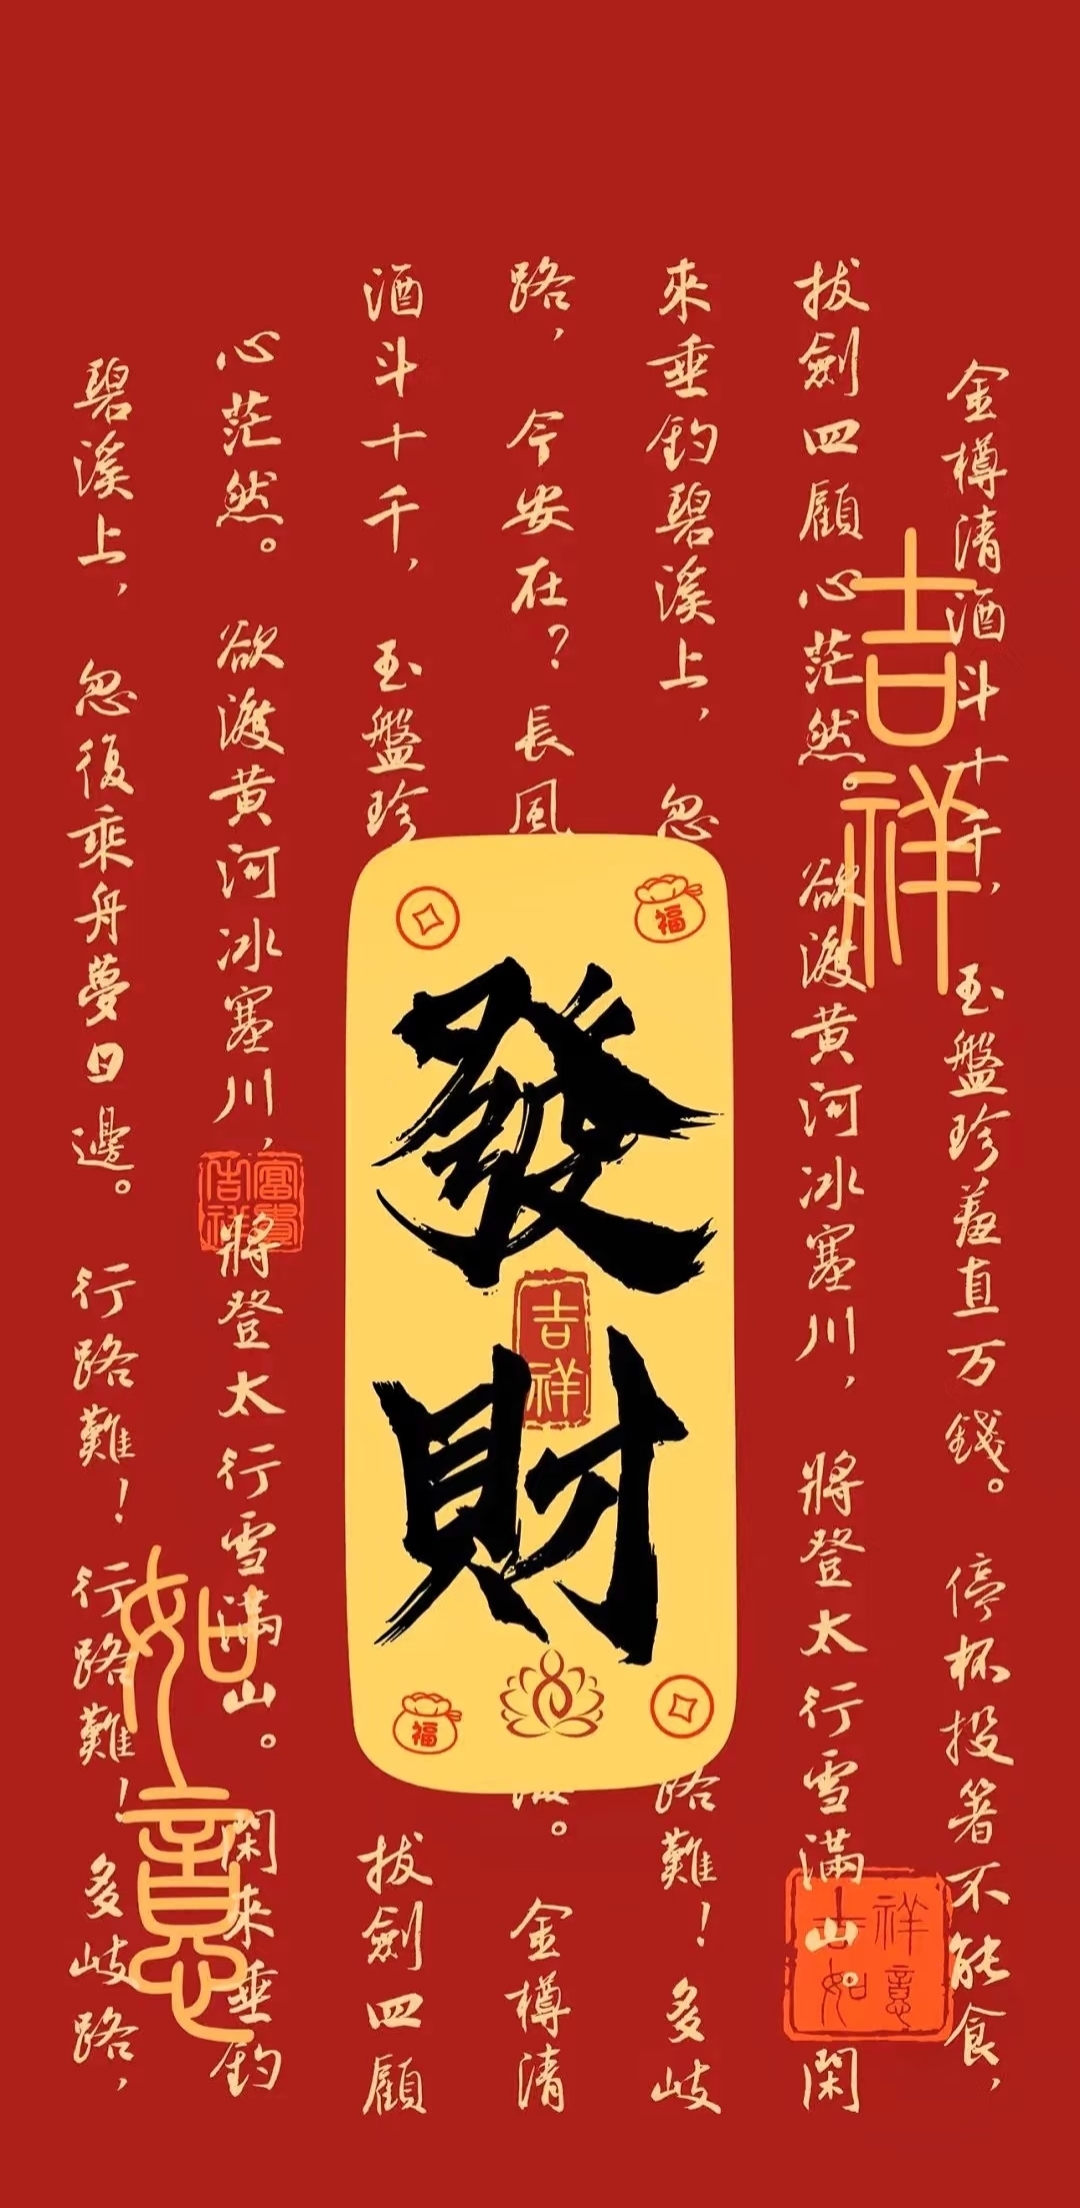 金樽清酒斗十千，玉盤珍羞直万錢。停杯投箸不能食，
拔劍四顧心茫然。欲渡黄河冰塞川，將登太行雪滿山。閑
來垂釣碧溪上，忽
路難！多岐
路，今安在？長風
。金樽清
酒斗十千，玉盤珍
拔劍四顧
心茫然。欲渡黄河冰塞川，將登太行雪滿山。閑來垂釣
碧溪上，忽復乘舟夢日邊。行路難！行路難！多岐路，
吉祥
福
發財
吉祥
福
富貴
吉祥
如意
祥意
吉如